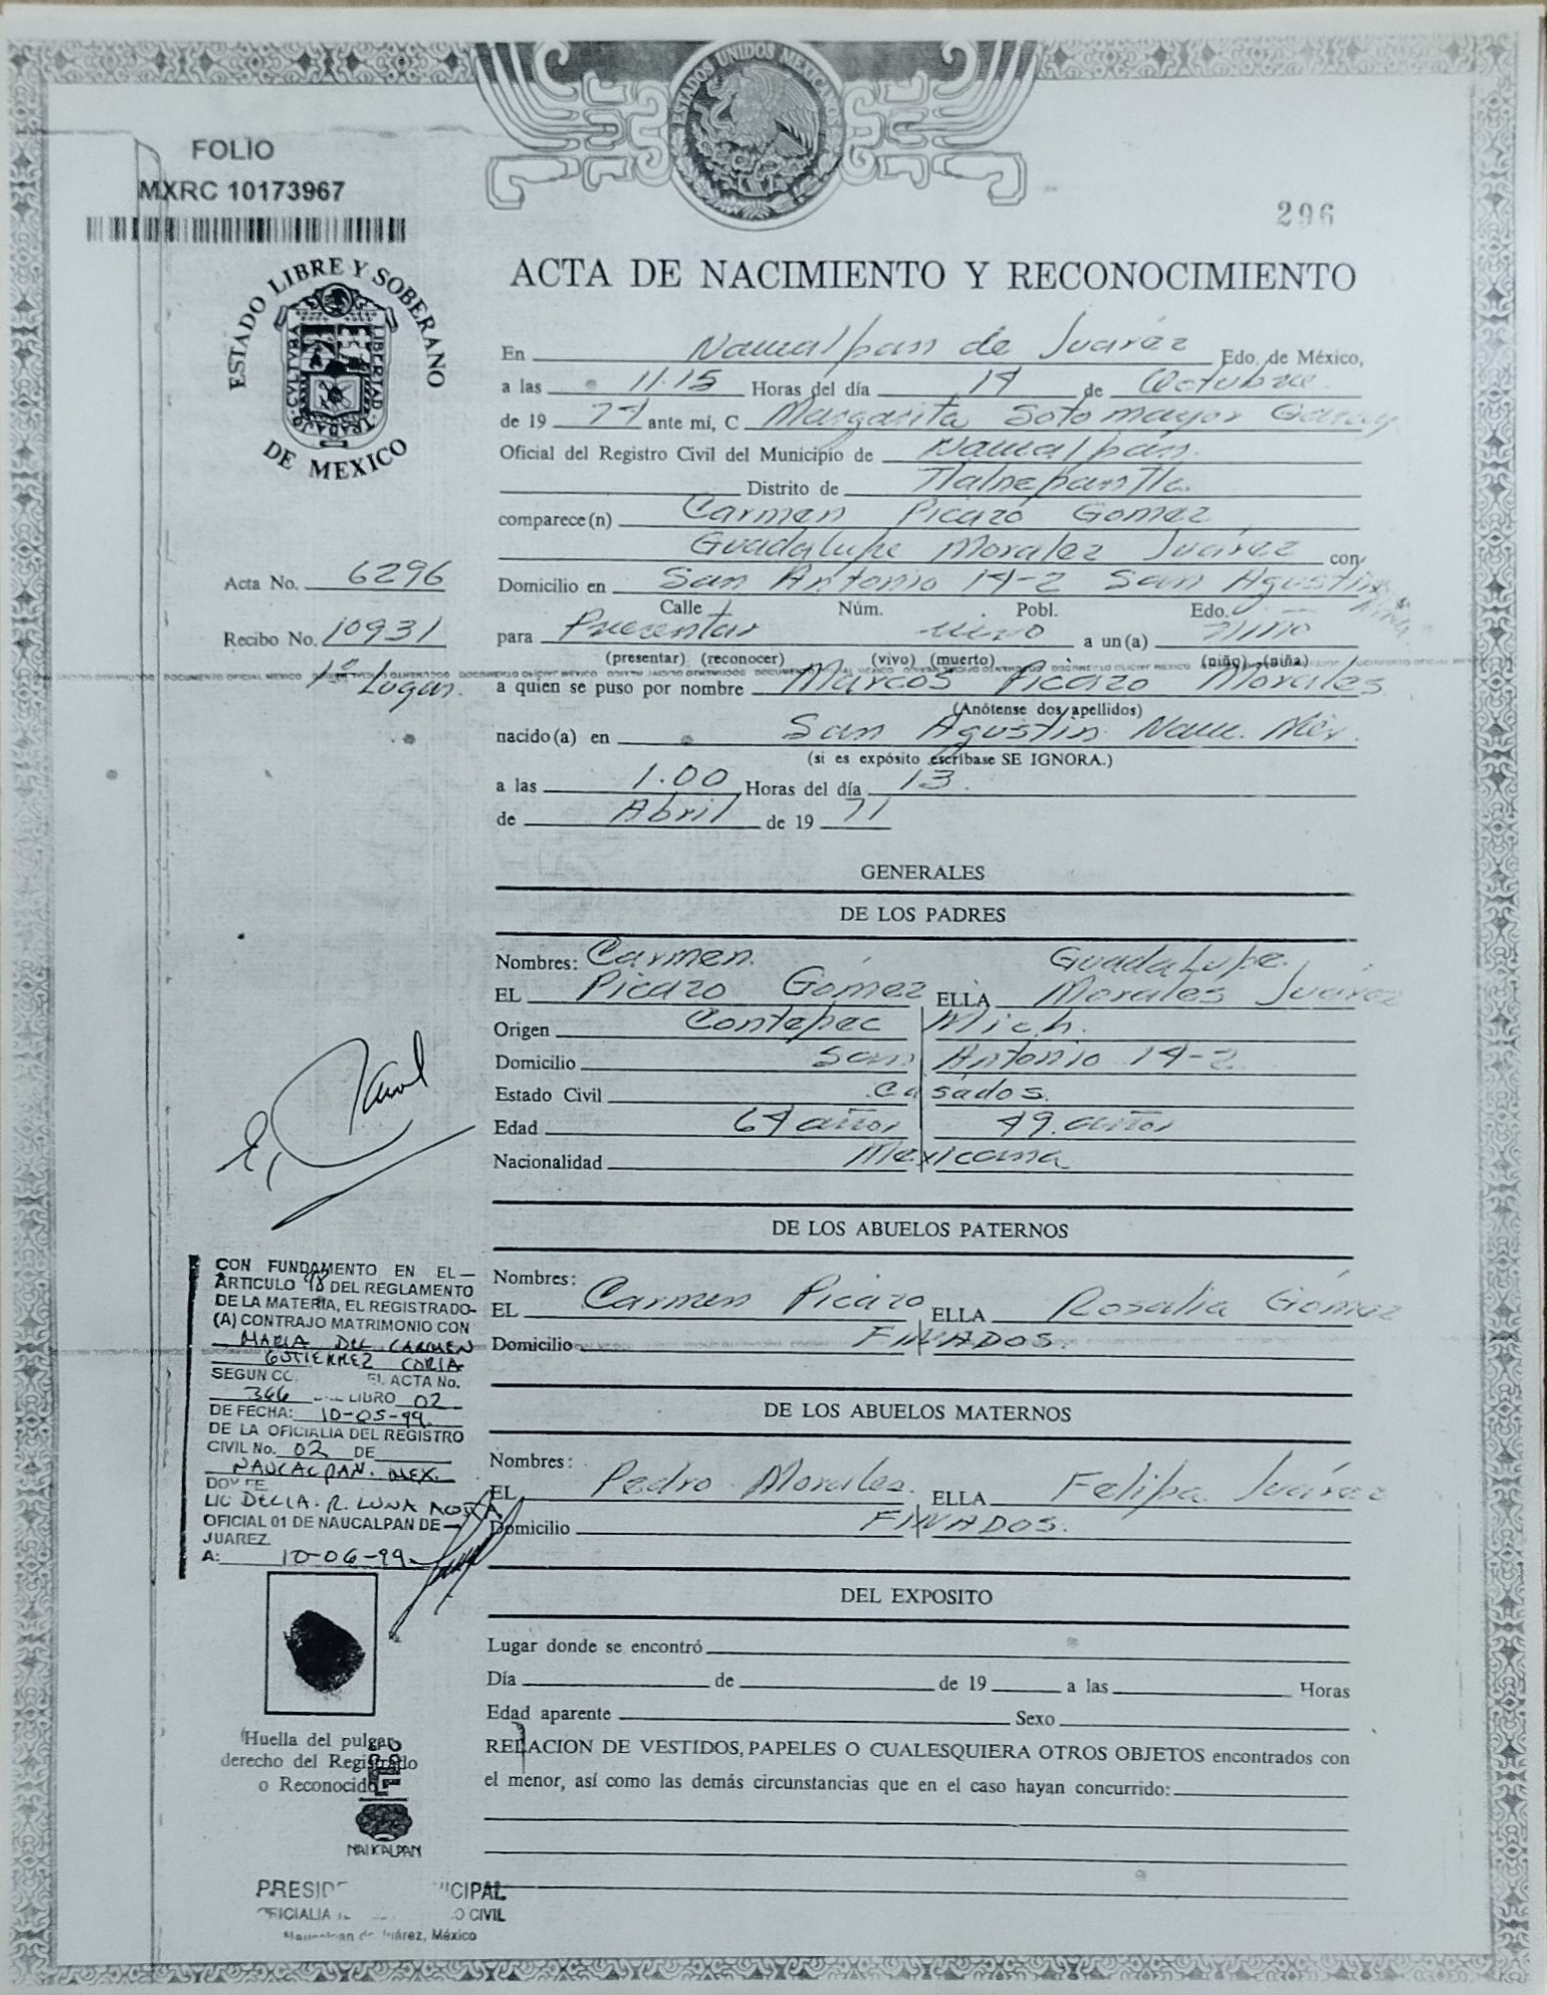 ESTADOS UNIDOS MEXICANOS
FOLIO
MXRC 10173967
296
ESTADO LIBRE Y SOBERANO
DE MEXICO
CULTURA TRABAJO LIBERTAD
ACTA DE NACIMIENTO Y RECONOCIMIENTO
En Naucalpan de Juárez Edo. de México,
a las 11.15 Horas del día 14 de Octubre
de 19 77 ante mí, C Margarita Sotomayor Garay
Oficial del Registro Civil del Municipio de Naucalpán.
Distrito de Tlalnepantla.
comparece(n) Carmen Picazo Gomez
Guadalupe Morales Juárez con
Acta No. 6296
Domicilio en San Antonio 14-2 San Agustin
Calle Núm. Pobl. Edo.
Recibo No. 10931
para Presentar vivo a un(a) niño
(presentar) (reconocer) (vivo) (muerto) (niño) (niña)
1º Lugar.
a quien se puso por nombre Marcos Picazo Morales
(Anótense dos apellidos)
nacido(a) en San Agustin Nauc. Méx.
(si es expósito escríbase SE IGNORA.)
a las 1.00 Horas del día 13.
de Abril de 19 71
GENERALES
DE LOS PADRES
Nombres: Carmen. Guadalupe.
EL Picazo Gómez ELLA Morales Juárez
Origen Contepec Mich.
Domicilio San Antonio 14-2
Estado Civil Casados.
Edad 64 años 49. años
Nacionalidad Mexicana
DE LOS ABUELOS PATERNOS
Nombres:
EL Carmen Picazo ELLA Rosalia Gómez
Domicilio FINADOS.
DE LOS ABUELOS MATERNOS
Nombres:
EL Pedro Morales. ELLA Felipa Juárez
Domicilio FINADOS.
DEL EXPOSITO
Lugar donde se encontró
Día de de 19 a las Horas
Edad aparente Sexo
RELACION DE VESTIDOS, PAPELES O CUALESQUIERA OTROS OBJETOS encontrados con
el menor, así como las demás circunstancias que en el caso hayan concurrido:
CON FUNDAMENTO EN EL
ARTICULO 98 DEL REGLAMENTO
DE LA MATERIA, EL REGISTRADO-
(A) CONTRAJO MATRIMONIO CON
MARIA DEL CARMEN
GUTIERREZ CORIA
SEGUN EL ACTA No.
366 LIBRO 02
DE FECHA: 10-05-99
DE LA OFICIALIA DEL REGISTRO
CIVIL No. 02 DE
NAUCALPAN. MEX.
DOY FE
LIC DELIA. R. LUNA ACOSTA
OFICIAL 01 DE NAUCALPAN DE
JUAREZ.
A: 10-06-99
Huella del pulgar
derecho del Registrado
o Reconocido
NAUCALPAN
CIVIL
Juárez, México